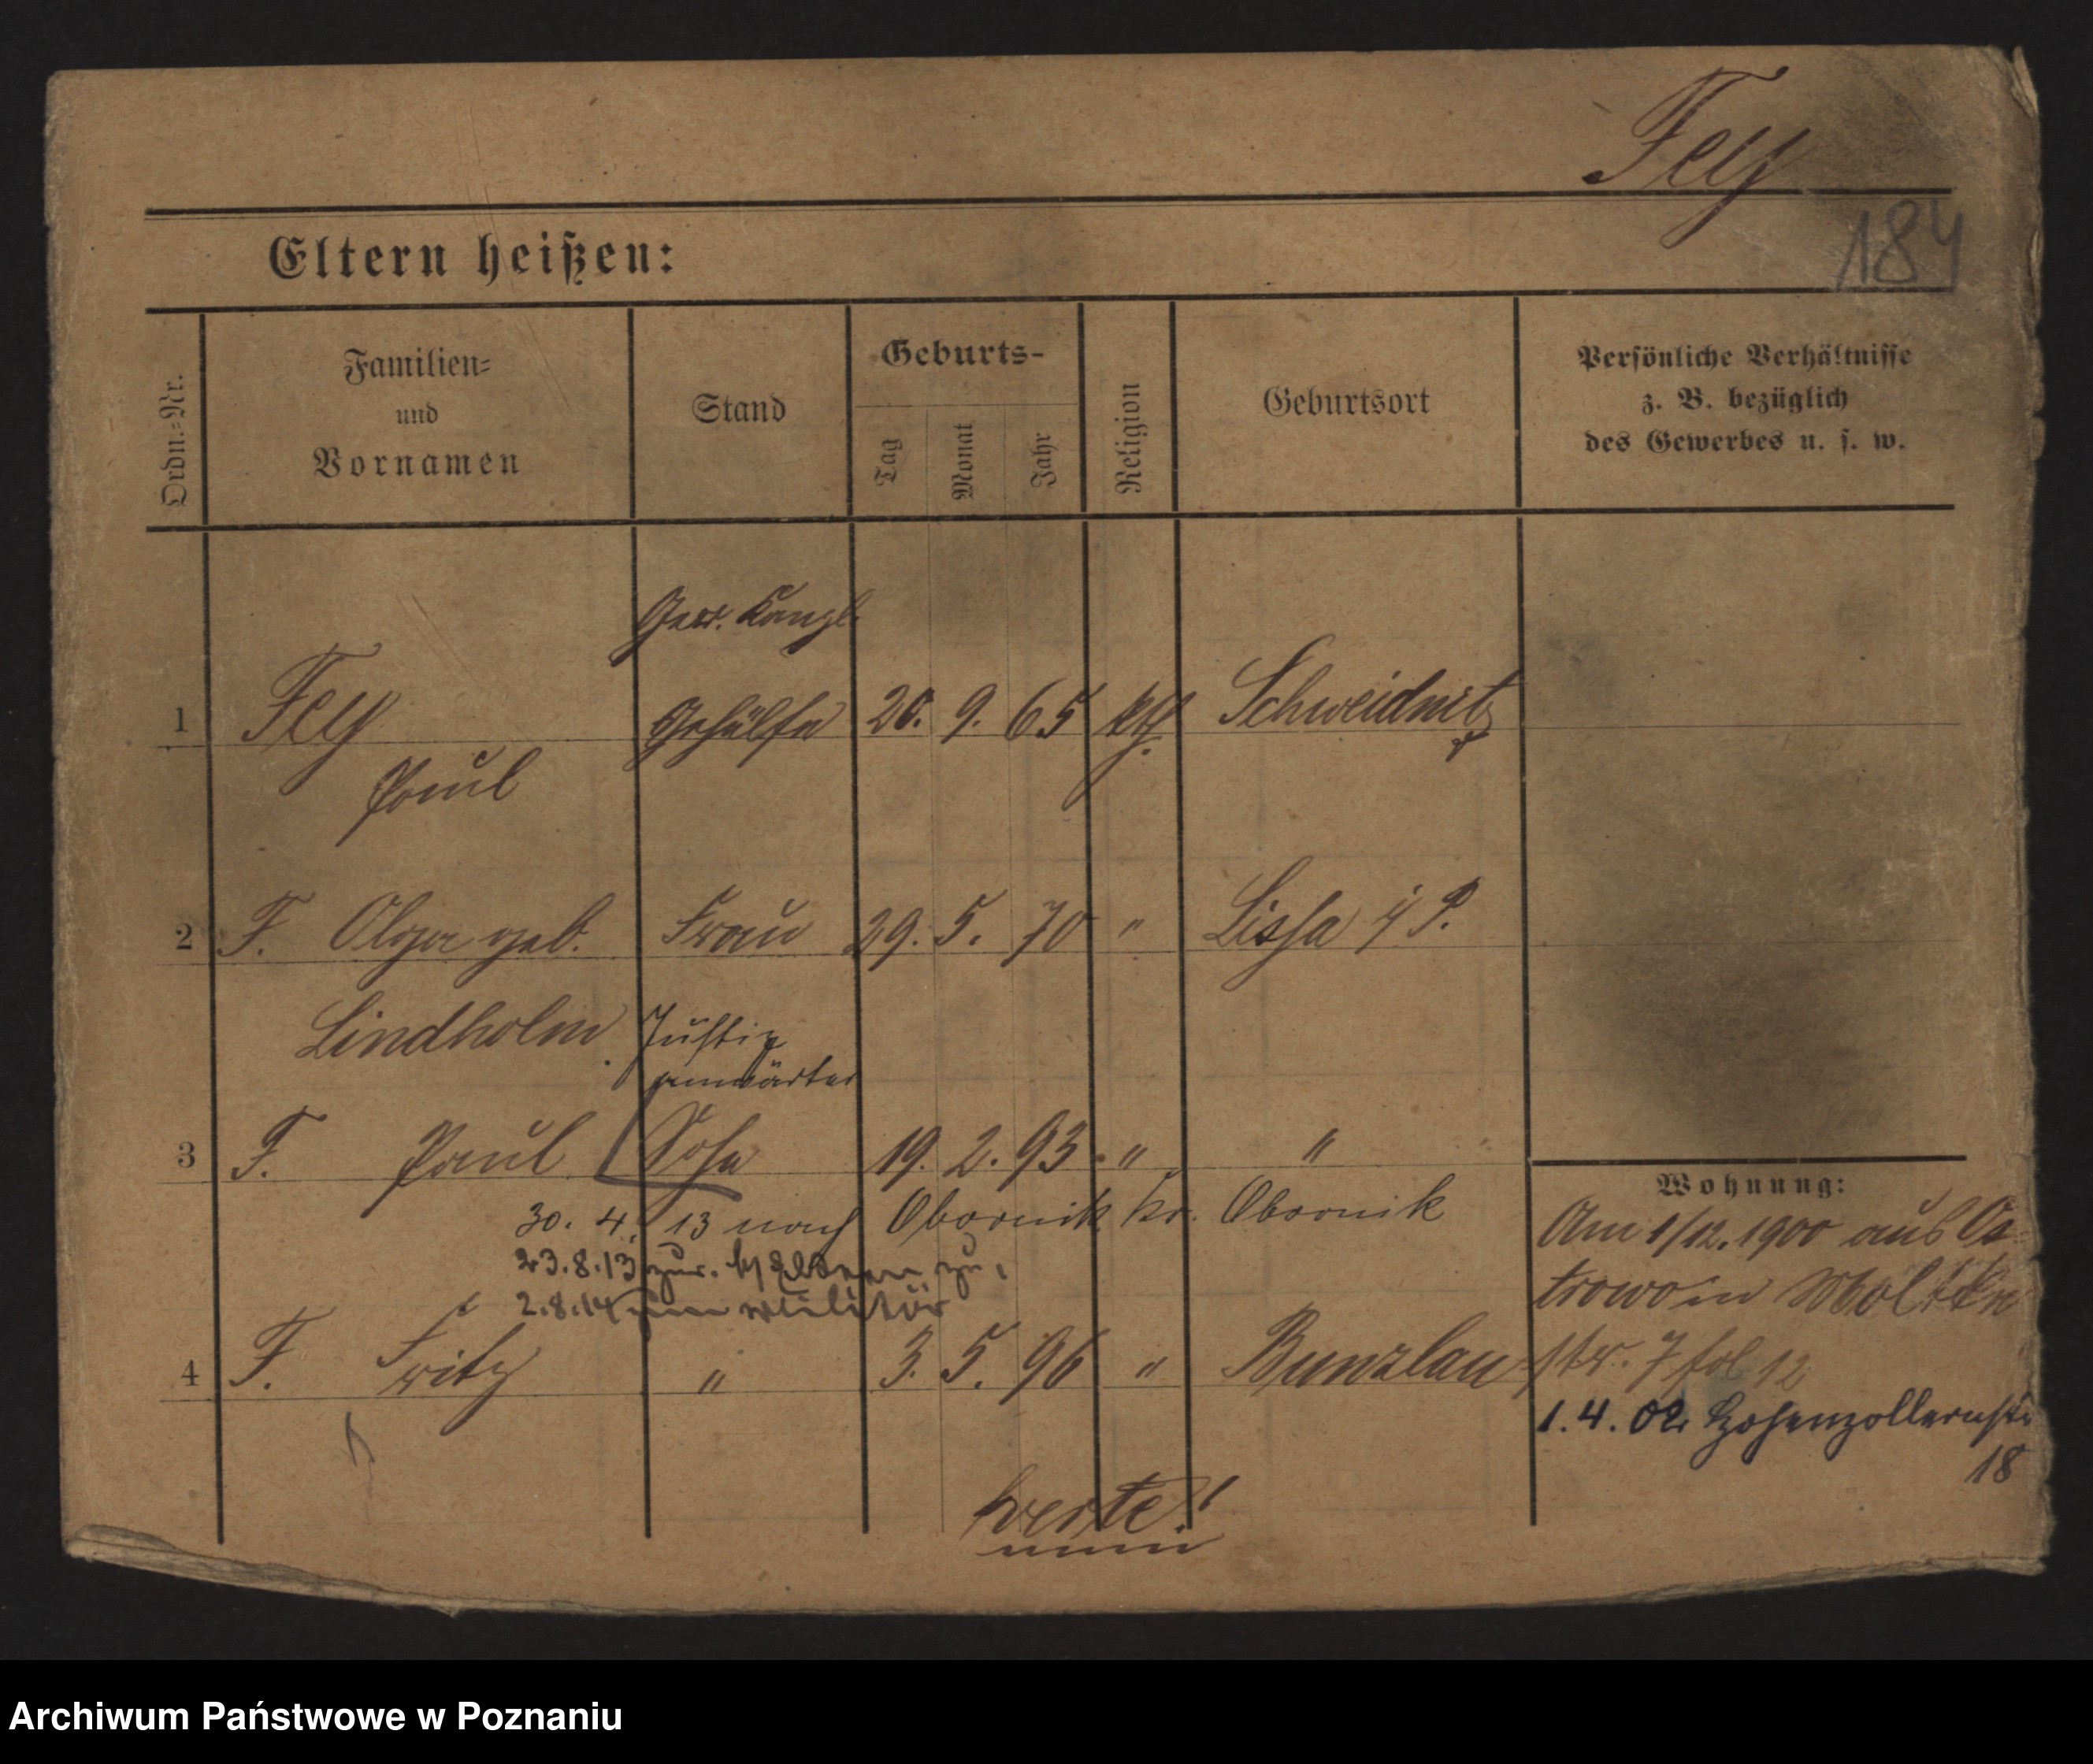 Fey
184
Eltern heißen:
Ordn.=Nr.
Familien=
und
Vornamen
Stand
Geburts-
Tag
Monat
Jahr
Religion
Geburtsort
Persönliche Verhältnisse
z. B. bezüglich
des Gewerbes u. s. w.
Ger. Kanzl.
1 Fey Gehülfe 20. 9. 65 kth. Schweidnitz
Paul
2 F. Olga geb. Frau 29. 5. 70 " Lissa i/P.
Lindholm Justiz
anwärter
3 F. Paul Sohn 19. 2. 93 " "
30. 4. 13 nach Obornik Kr. Obornik
23.8.13 zur. b/ Eltern zu.
2.8.14 zum Militär
4 F. Fritz " 3. 5. 96 " Bunzlau
werte!
Wohnung:
Am 1/12. 1900 aus Os-
trowo in Moltke
str. 7 fol 12
1.4.02 Hohenzollernstr
18
Archiwum Państwowe w Poznaniu